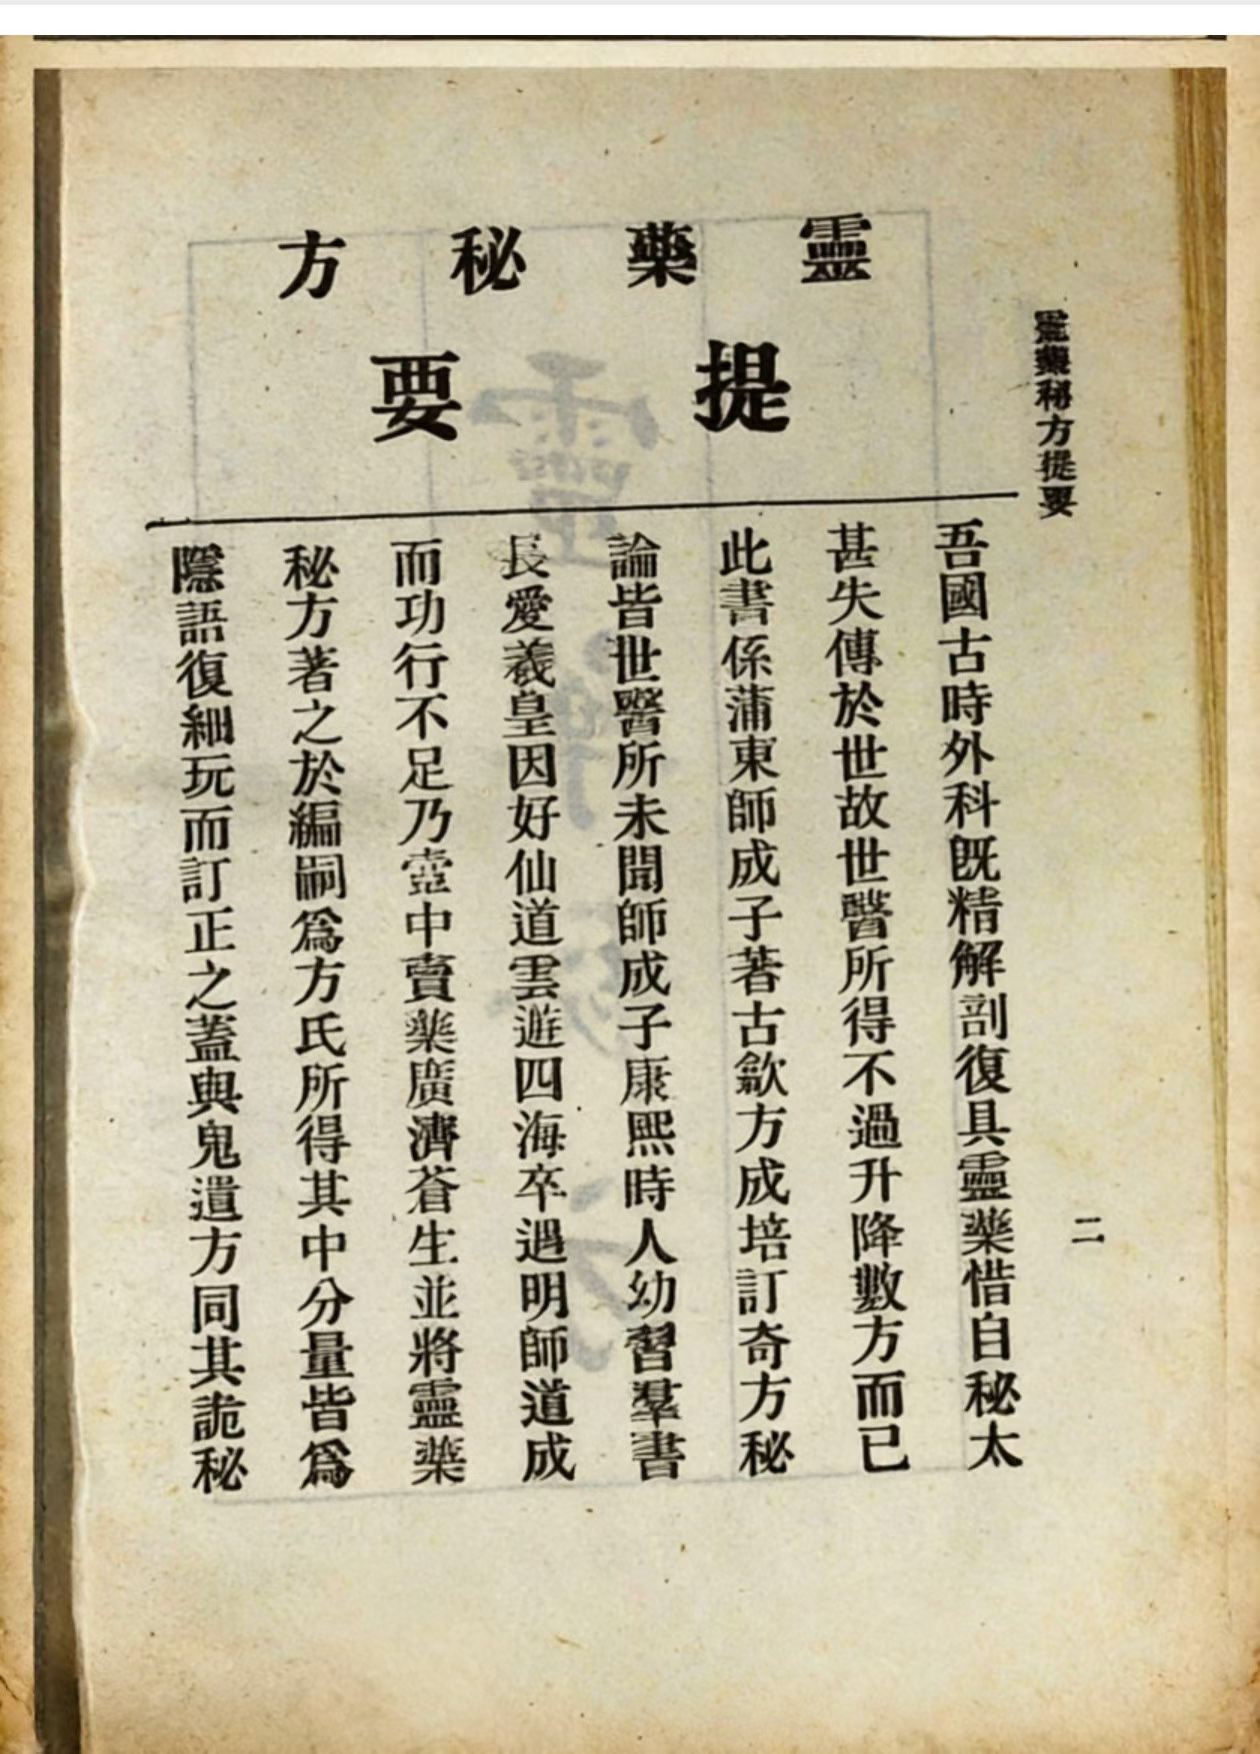 靈藥秘方提要
二
靈藥秘方
提要
吾國古時外科既精解剖復具靈藥惜自秘太
甚失傳於世故世醫所得不過升降數方而已
此書係蒲東師成子著古歙方成培訂奇方秘
論皆世醫所未聞師成子康熙時人幼習羣書
長愛羲皇因好仙道雲遊四海卒遇明師道成
而功行不足乃壺中賣藥廣濟蒼生並將靈藥
秘方著之於編嗣爲方氏所得其中分量皆爲
隱語復細玩而訂正之蓋與鬼遺方同其詭秘